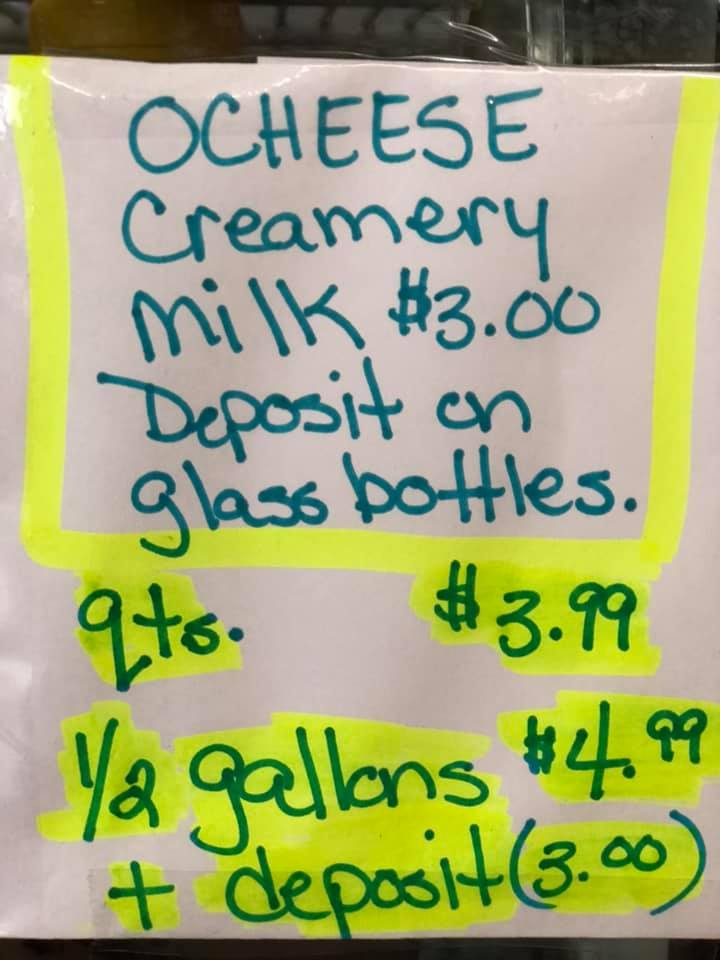 OCHEESE
Creamery
Milk $3.00
Deposit on
glass bottles.
qts. $3.99
1/2 gallons $4.99
+ deposit (3.00)